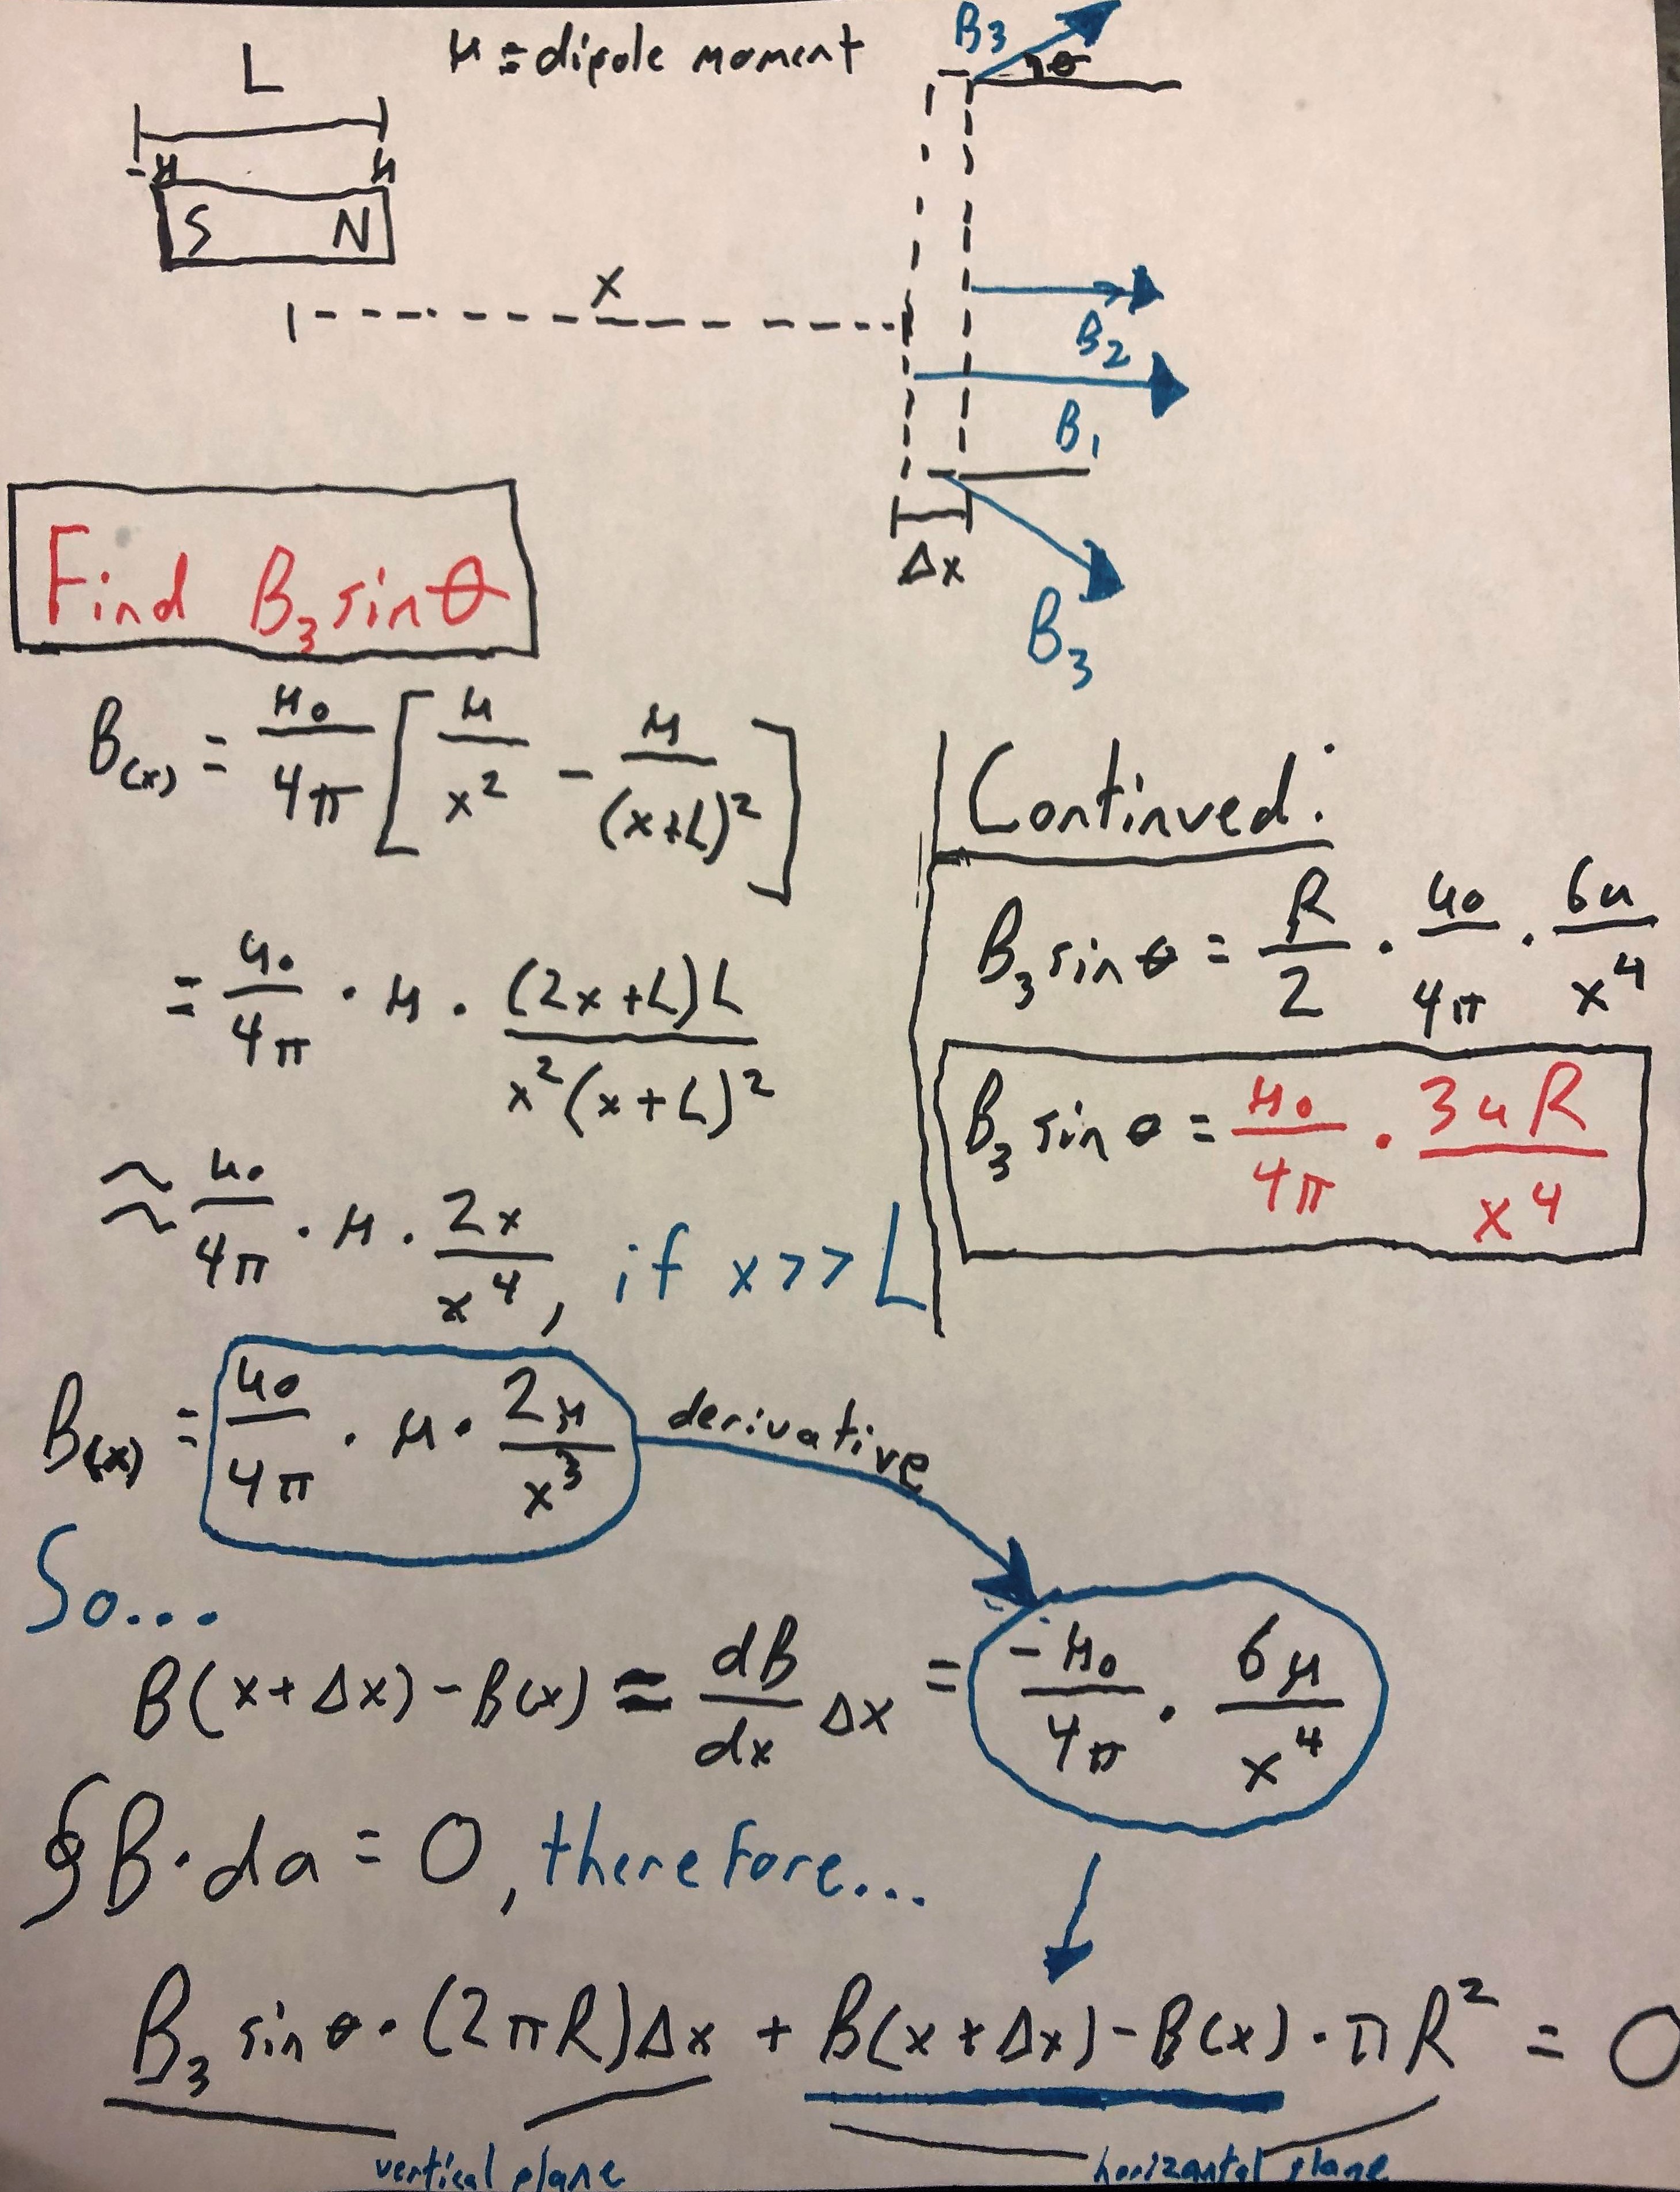 L
μ = dipole moment
-μ μ
S N
B₃ θ
x
B₂
B₁
Δx
B₃
Find B₃ sin θ
B(x) = μ₀/4π [μ/x² - μ/(x+L)²]
= μ₀/4π · μ · (2x+L)L/x²(x+L)²
≈ μ₀/4π · μ · 2x/x⁴, if x >> L
B(x) = μ₀/4π · μ · 2μ/x³
derivative
So...
B(x+Δx) - B(x) ≈ dB/dx Δx = -μ₀/4π · 6μ/x⁴
∮B·da = 0, therefore...
B₃ sin θ · (2πR)Δx + B(x+Δx) - B(x) · πR² = 0
vertical plane horizantal plane
Continued:
B₃ sin θ = R/2 · μ₀/4π · 6μ/x⁴
B₃ sin θ = μ₀/4π · 3μR/x⁴